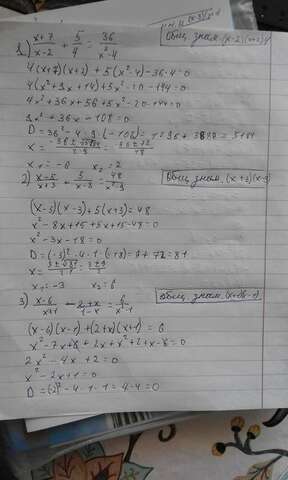 (x-3)
1) x+7/x-2 + 5/4 = 36/x²-4
Общ. знам. (x-2)(x+2)4
4(x+7)(x+2) + 5(x²-4) - 36·4 = 0
4(x²+9x+14) + 5x² - 20 - 144 = 0
4x² + 36x + 56 + 5x² - 20 - 144 = 0
9x² + 36x - 108 = 0
D = 36² - 4·9·(-108) = 1296 + 3888 = 5184
x₁ = -6 x₂ = 2
2) x-5/x+3 + 5/x-3 = 48/x²-9
Общ. знам. (x+3)(x-3)
(x-5)(x-3) + 5(x+3) = 48
x² - 8x + 15 + 5x + 15 - 48 = 0
x² - 3x - 18 = 0
D = (-3)² - 4·1·(-18) = 9 + 72 = 81
x₁ = -3 x₂ = 6
3) x-6/x+1 - 2+x/1-x = 6/x²-1
Общ. знам. (x+1)(x-1)
(x-6)(x-1) + (2+x)(x+1) = 6
x² - 7x + 6 + 2x + x² + 2 + x - 6 = 0
2x² - 4x + 2 = 0
x² - 2x + 1 = 0
D = (-2)² - 4·1·1 = 4 - 4 = 0